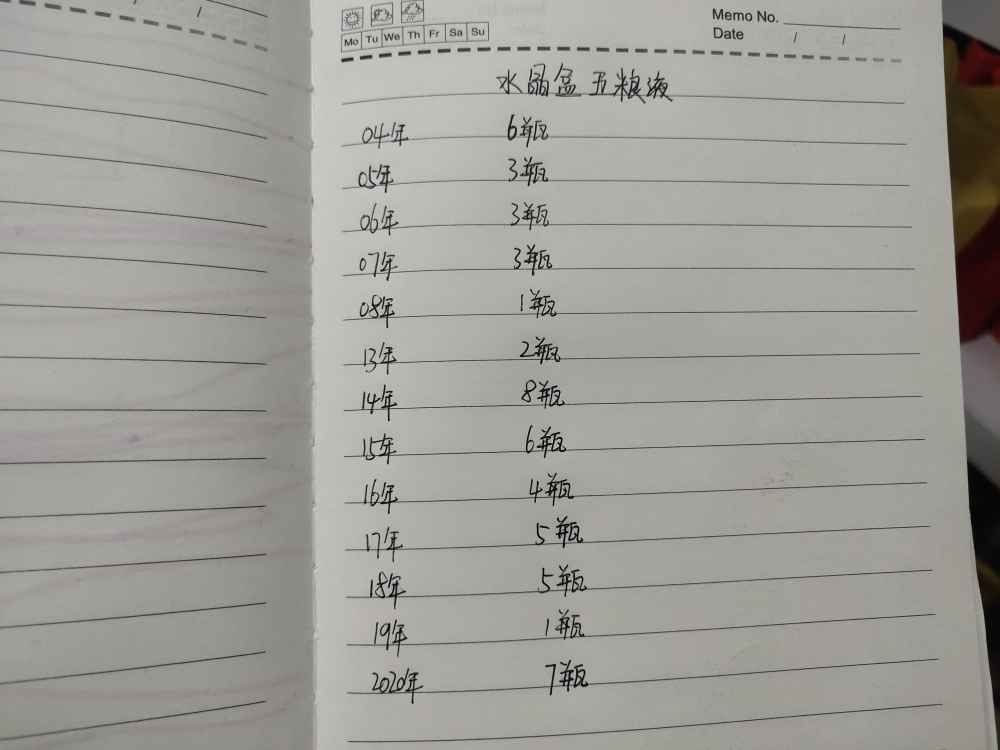 Memo No.
Mo Tu We Th Fr Sa Su
Date / /
水晶盒五粮液
04年 6瓶
05年 3瓶
06年 3瓶
07年 3瓶
08年 1瓶
13年 2瓶
14年 8瓶
15年 6瓶
16年 4瓶
17年 5瓶
18年 5瓶
19年 1瓶
2020年 7瓶